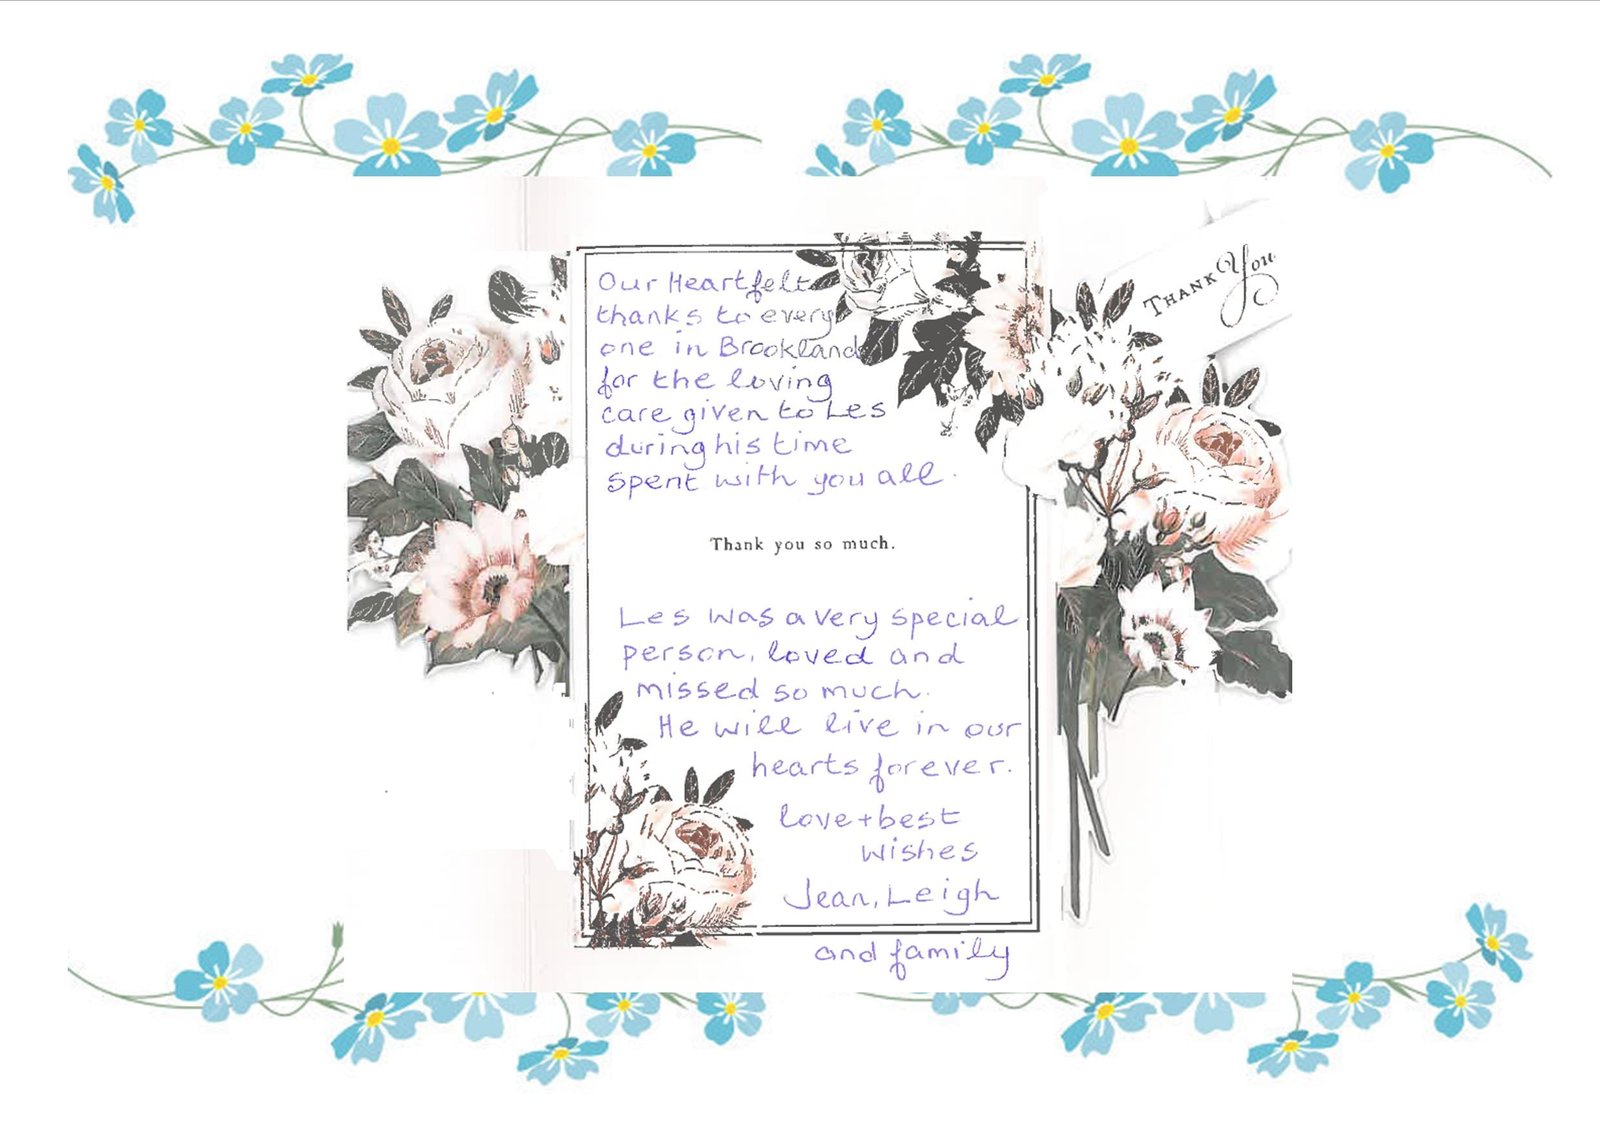 Thank You
Our Heartfelt
thanks to every
one in Brookland
for the loving
care given to Les
during his time
spent with you all.
Thank you so much.
Les was a very special
person, loved and
missed so much.
He will live in our
hearts forever.
love + best
wishes
Jean, Leigh
and family